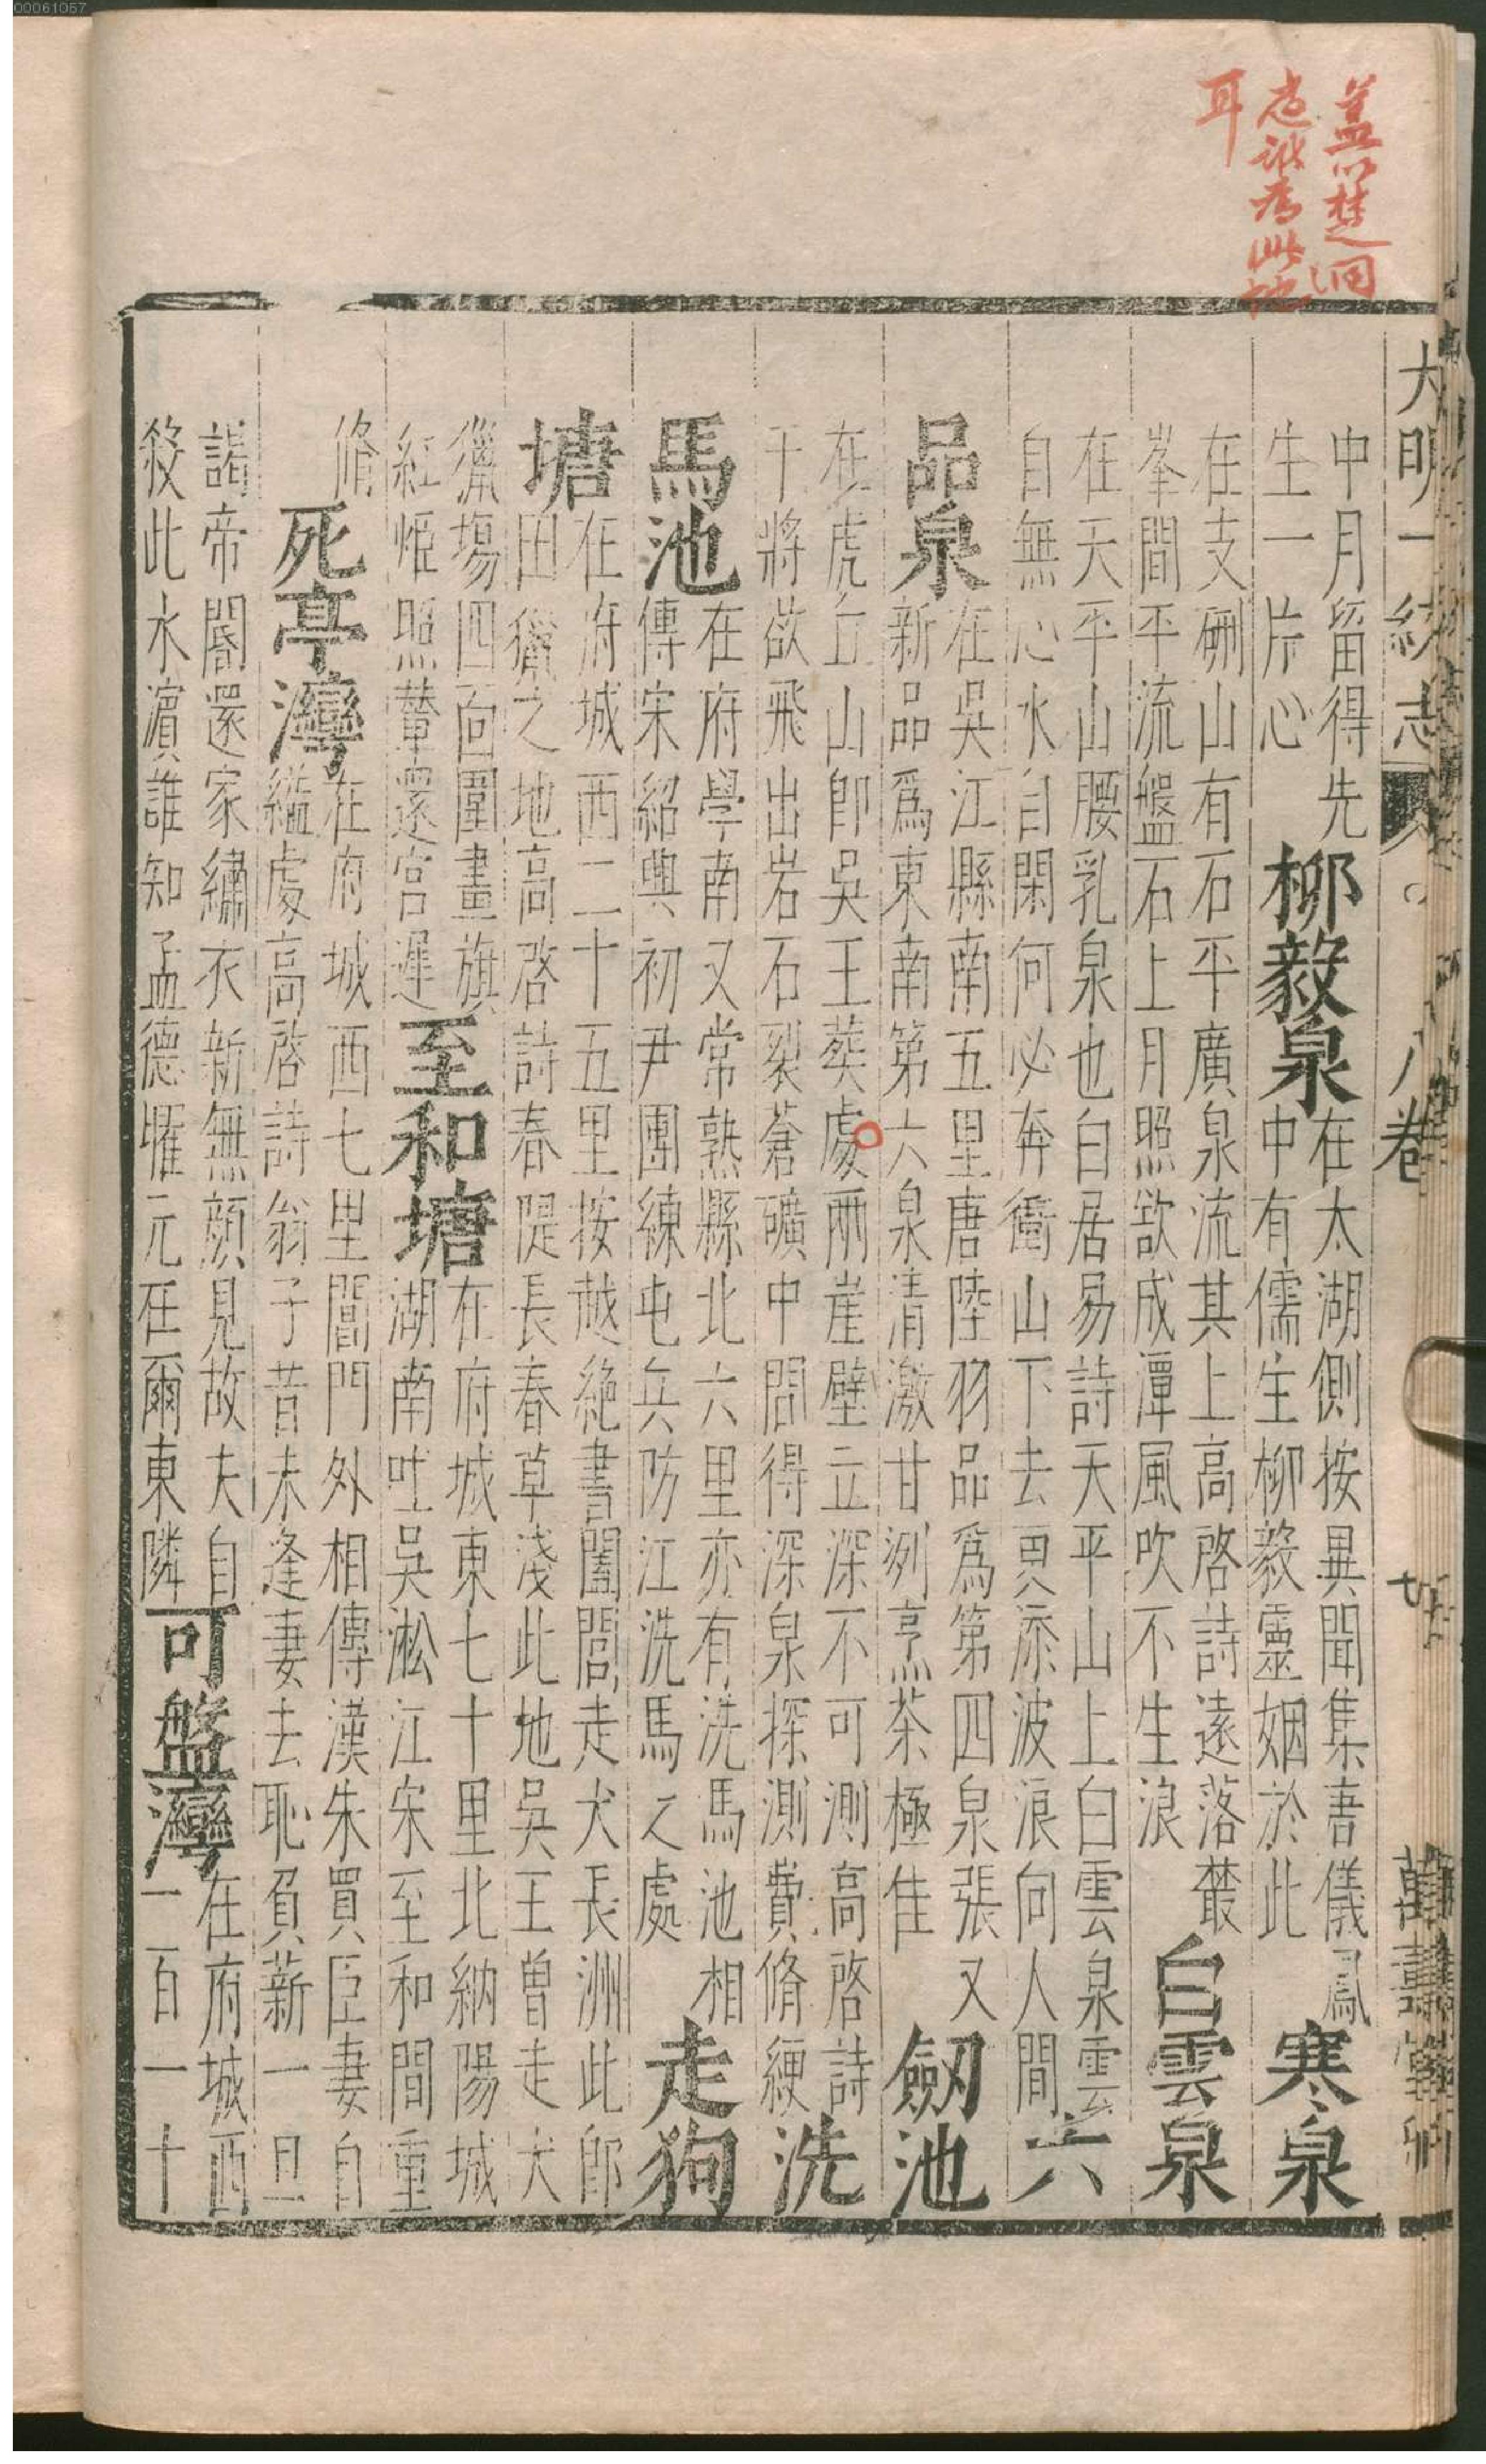 蓋以楚洞
庭誤為此地
耳
大明一統志 八卷 萬壽堂刊
中月留得先
生一片心
柳毅泉
在太湖側按異聞集吾儀鳳
中有儒生柳毅靈姻於此
寒泉
在支硎山有石平廣泉流其上高啓詩遠落叢
峯間平流盤石上月照欲成潭風吹不生浪
白雲泉
在天平山腰乳泉也白居易詩天平山上白雲泉雲
自無心水自閑何必奔衝山下去更添波浪向人間
六
品泉
在吳江縣南五里唐陸羽品爲第四泉張又
新品爲東南第六泉清激甘洌烹茶極佳
劒池
在虎丘山卽吳王葬處兩崖壁立深不可測高啓詩
干將欲飛出岩石裂蒼礦中間得深泉探測費脩綆
洗
馬池
在府學南又常熟縣北六里亦有洗馬池相
傳宋紹興初尹團練屯兵防江洗馬之處
走狗
塘
在府城西二十五里按越絶書闔閭走犬長洲此卽
田獵之地高啓詩春隄長春草淺此地吳王曾走犬
獵塲四向圍畫旗
紅姬照輦還宮遲
至和塘
在府城東七十里北納陽城
湖南吐吳淞江宋至和間重
脩
死亭灣
在府城西七里閶門外相傳漢朱買臣妻自
縊處高啓詩翁子昔未逢妻去恥負薪一旦
謁帝閽還家繡衣新無顔見故夫自
殺此水濵誰知孟德燿元在爾東隣
可盤灣
在府城西
一百一十